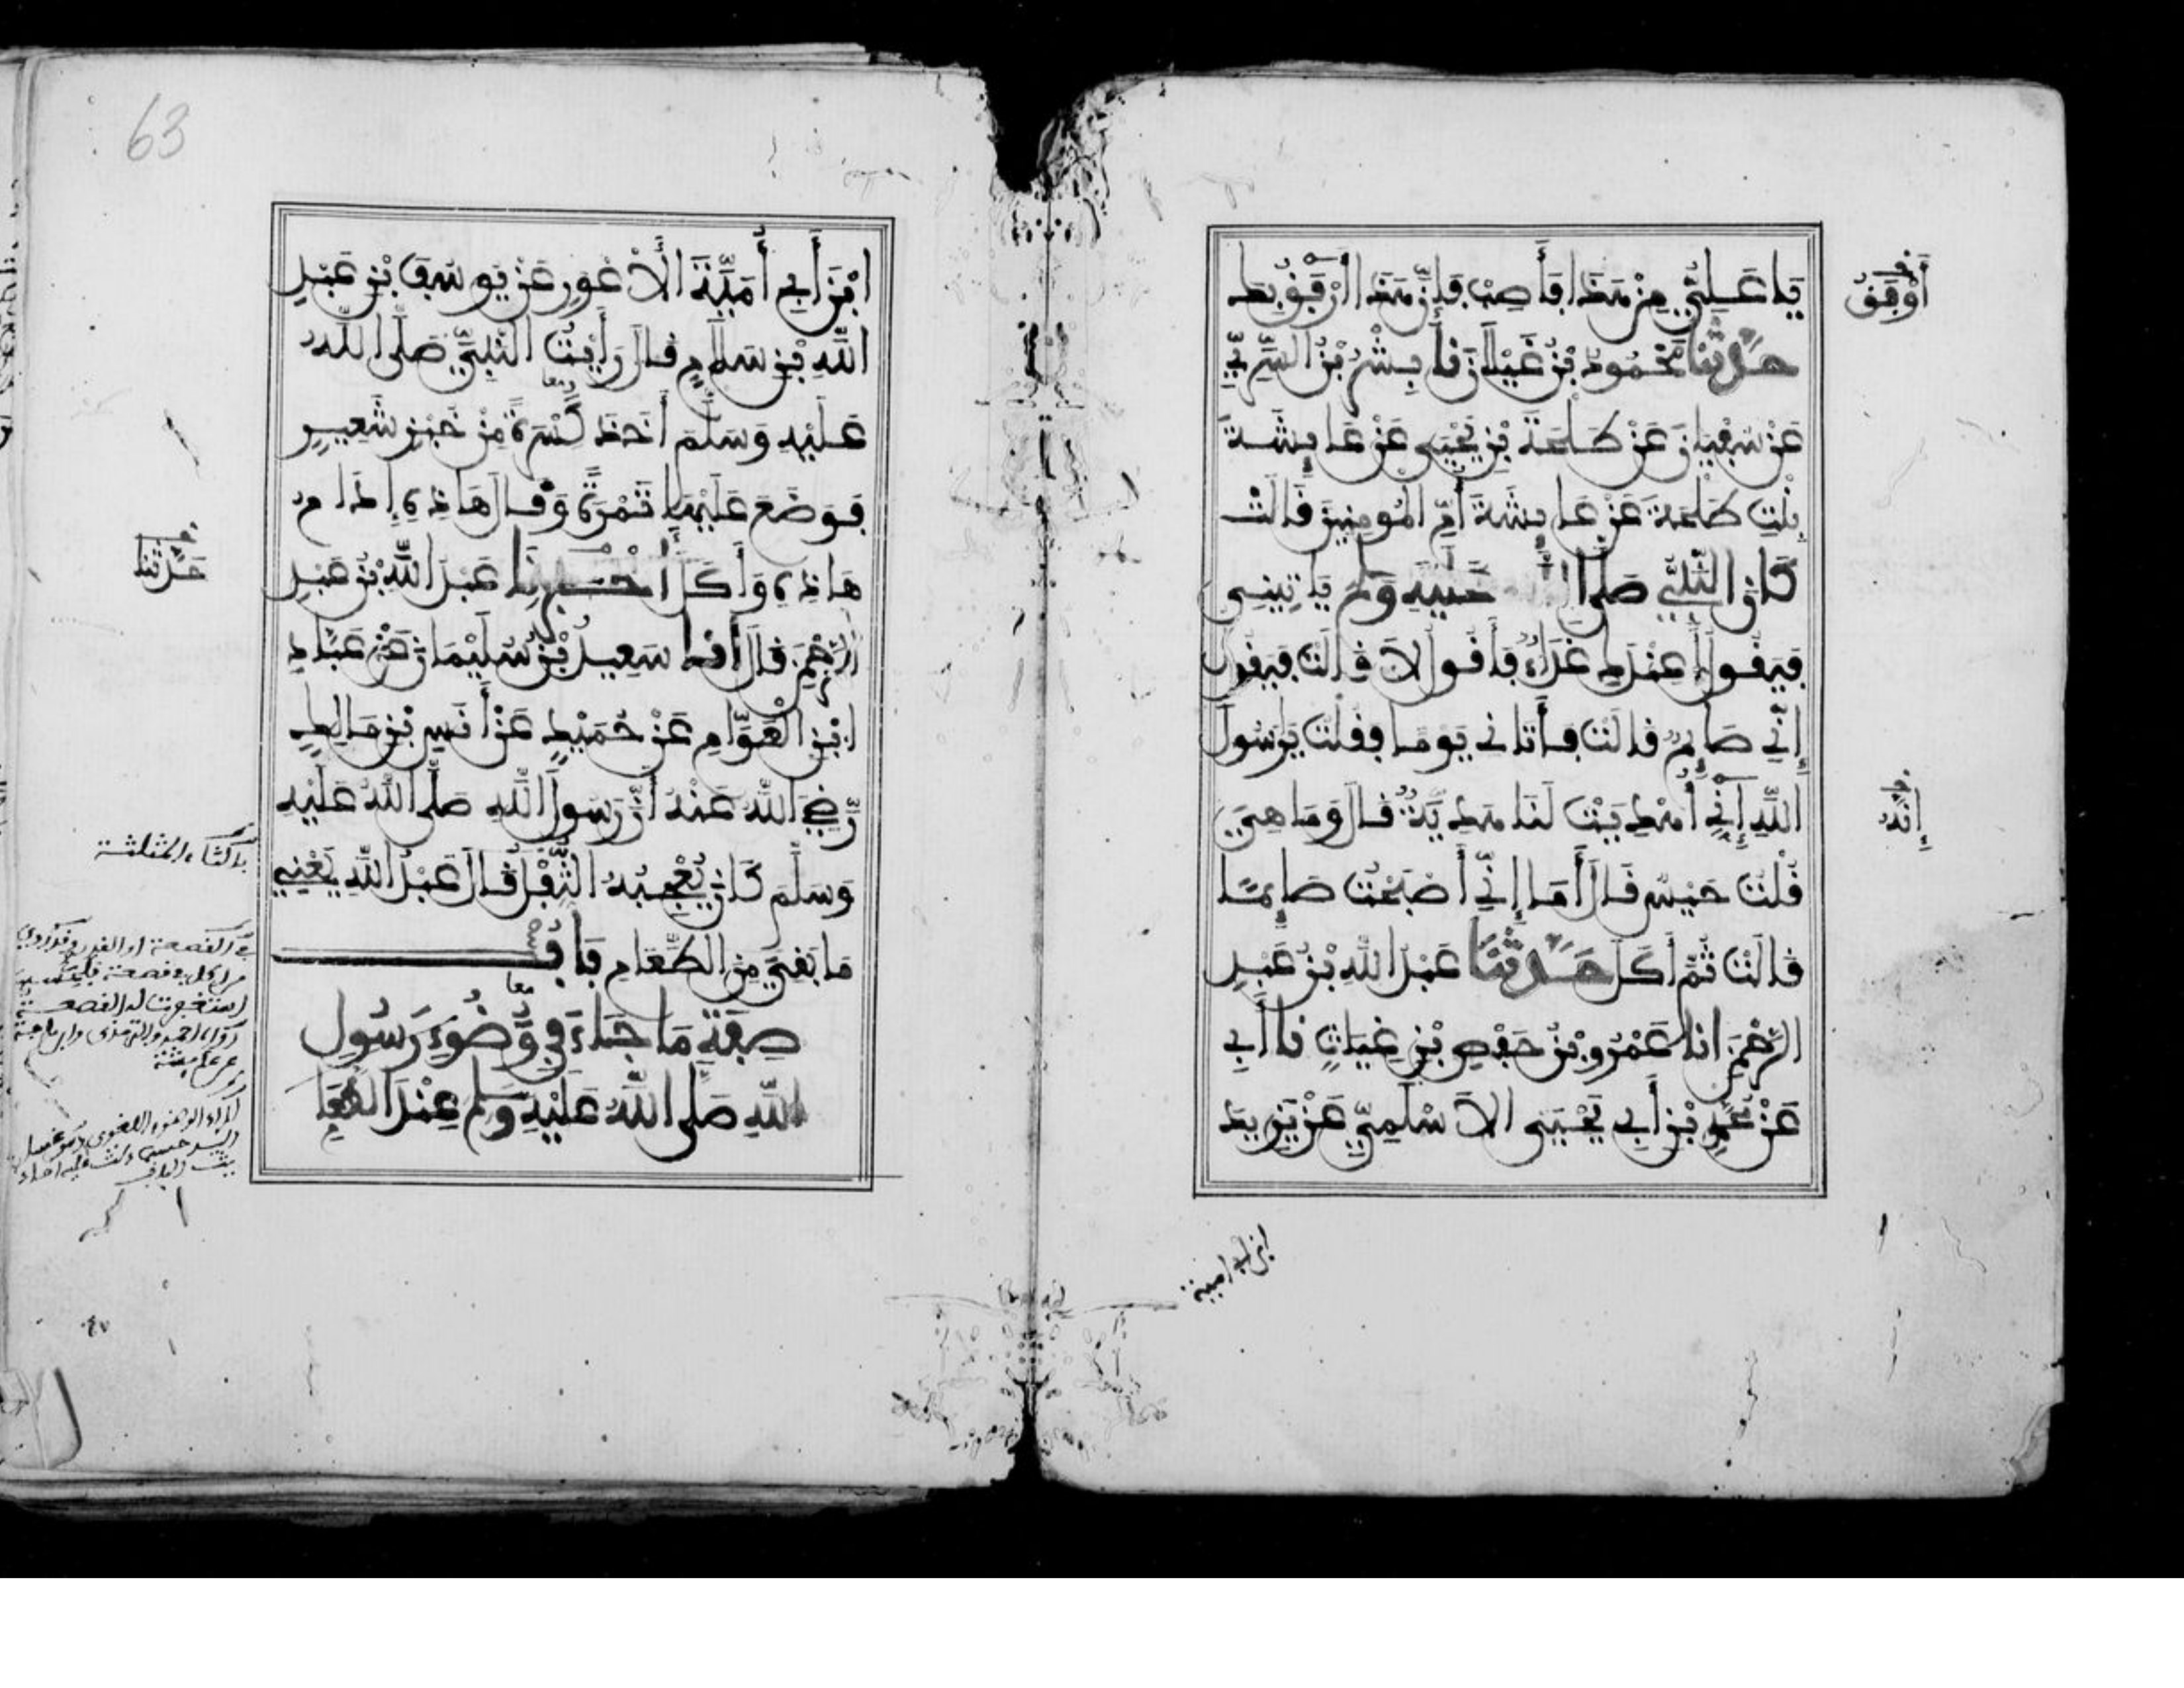 يَا عَلِيُّ مِنْ هَذَا فَأَصِبْ فَإِنَّ هَذَا أَرْفَقُ بِكَ
أَوْفَقُ
حَدَّثَنَا مَحْمُودُ بْنُ غَيْلَانَ نا بِشْرُ بْنُ السَّرِيِّ
عَنْ سُفْيَانَ عَنْ طَلْحَةَ بْنِ يَحْيَى عَنْ عَائِشَةَ
بِنْتِ طَلْحَةَ عَنْ عَائِشَةَ أُمِّ الْمُومِنِينَ قَالَتْ
كَانَ النَّبِيُّ صَلَّى عَلَيْهِ وَسَلَّمَ يَاتِينِي
فَيَقُولُ أَعِنْدَكِ غَدَاءٌ فَأَقُولُ لَا قَالَتْ فَيَقُولُ
إِنِّي صَائِمٌ قَالَتْ فَأَتَانِي يَوْمًا فَقُلْتُ يَا رَسُولَ
اللَّهِ إِنِّي أُهْدِيَتْ لَنَا هَدِيَّةٌ قَالَ وَمَا هِيَ
إِنَّهُ
قُلْتُ حَيْسٌ قَالَ أَمَا إِنِّي أَصْبَحْتُ صَائِمًا
قَالَتْ ثُمَّ أَكَلَ حَدَّثَنَا عَبْدُ اللَّهِ بْنُ عَبْدِ
الرَّحْمَنِ انا عُمَرُ بْنُ حَفْصِ بْنِ غِيَاثٍ نا أَبِي
عَنْ مُحَمَّدِ بْنِ أَبِي يَحْيَى الْأَسْلَمِيِّ عَنْ يَزِيدَ
ابن أبي امية
63
ابْنِ أَبِي أُمَيَّةَ الْأَعْوَرِ عَنْ يُوسُفَ بْنِ عَبْدِ
اللَّهِ بْنِ سَلَامٍ قَالَ رَأَيْتُ النَّبِيَّ صَلَّى اللَّهُ
عَلَيْهِ وَسَلَّمَ أَخَذَ كِسْرَةً مِنْ خُبْزِ شَعِيرٍ
فَوَضَعَ عَلَيْهَا تَمْرَةً وَقَالَ هَاذِهِ إِدَامُ
هَاذِهِ وَأَكَلَ أَخْبَرَنَا عَبْدُ اللَّهِ بْنُ عَبْدِ
حَدَّثَنَا
الرَّحْمَنِ قَالَ أنا سَعِيدُ بْنُ سُلَيْمَانَ عَنْ عَبَّادِ
ابْنِ الْعَوَّامِ عَنْ حُمَيْدٍ عَنْ أَنَسِ بْنِ مَالِكٍ
رَضِيَ اللَّهُ عَنْهُ أَنَّ رَسُولَ اللَّهِ صَلَّى اللَّهُ عَلَيْهِ
وَسَلَّمَ كَانَ يُعْجِبُهُ الثُّفْلُ قَالَ عَبْدُ اللَّهِ يَعْنِي
بالثاء المثلثة
مَا بَقِيَ مِنَ الطَّعَامِ بَابُ
صِفَةِ مَا جَاءَ فِي وُضُوءِ رَسُولِ
معا
اللَّهِ صَلَّى اللَّهُ عَلَيْهِ وَسَلَّمَ عِنْدَ الطَّعَامِ
في القصعة او القدر وقد روي
من اكل في قصعة
استغفرت له القصعة
رواه احمد والترمذي وابن ماجة